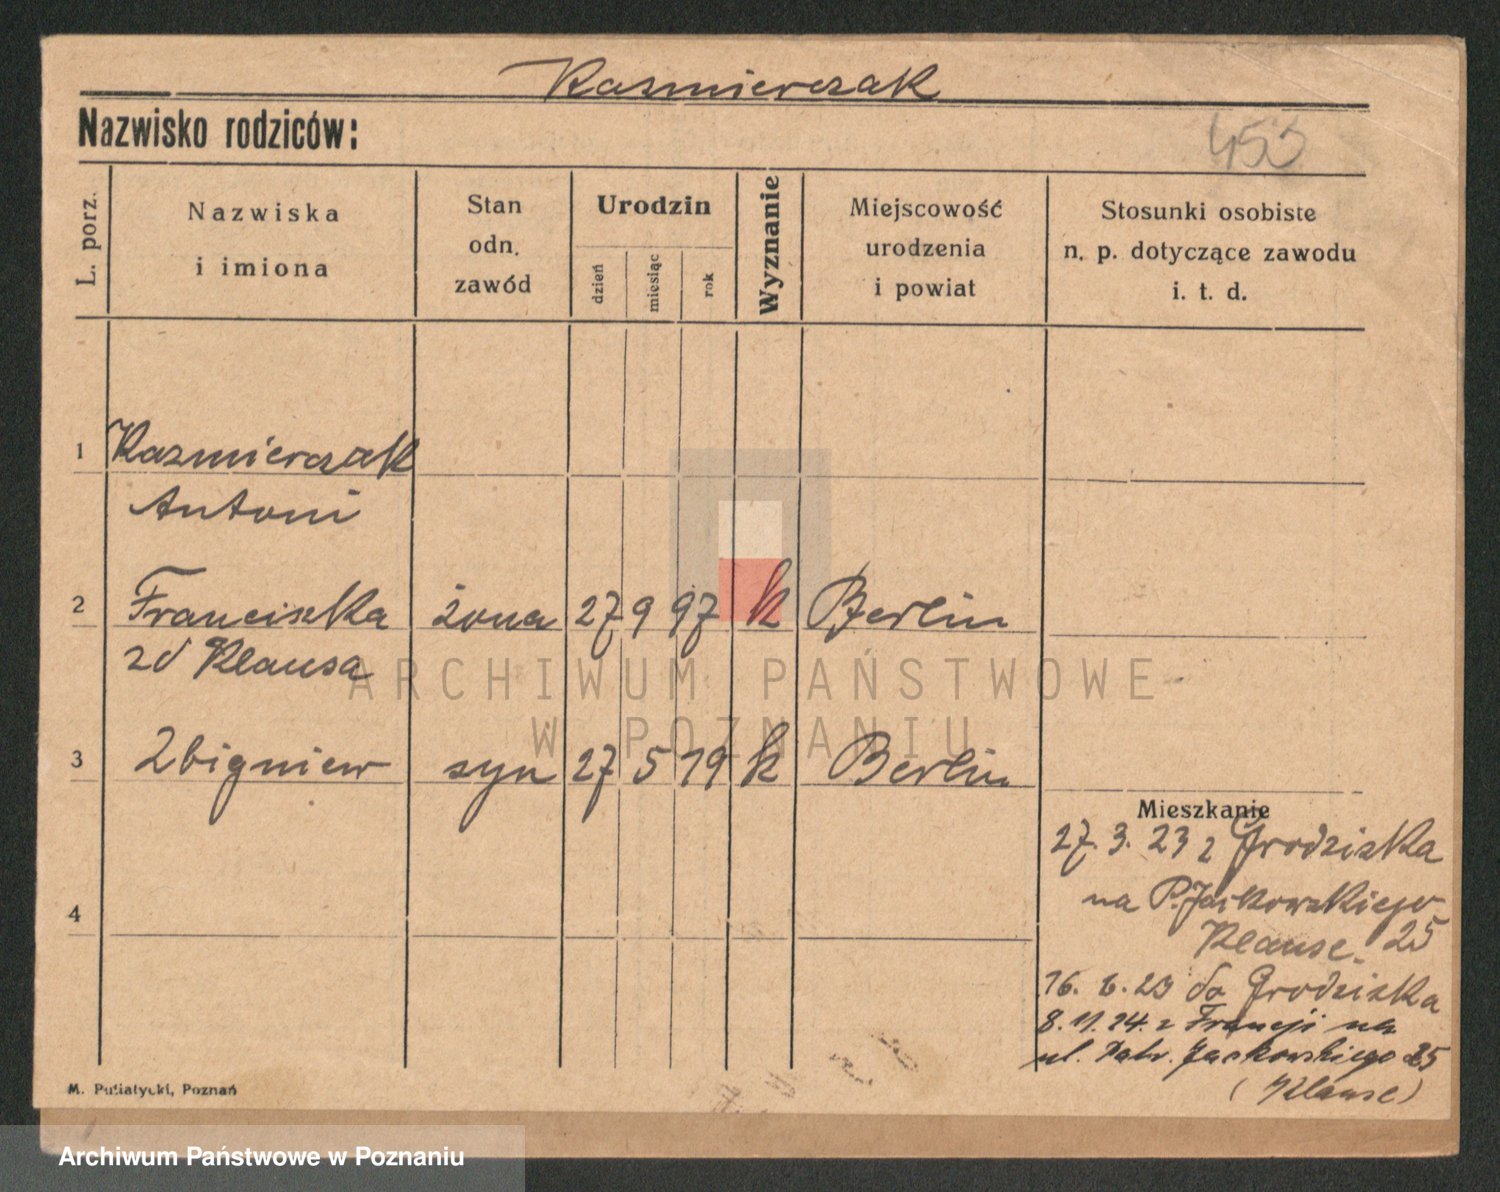 Kazmierczak
Nazwisko rodziców:
453
L. porz.
Nazwiska
i imiona
Stan
odn.
zawód
Urodzin
dzień
miesiąc
rok
Wyznanie
Miejscowość
urodzenia
i powiat
Stosunki osobiste
n. p. dotyczące zawodu
i. t. d.
1 Kazmierczak
Antoni
2 Franciszka żona 27 9 97 k Berlin
zd Klausa
3 Zbigniew syn 27 5 19 k Berlin
4
Mieszkanie
27. 3. 23 z Grodziska
na P. Jackowskiego
Klause. 25
16. 6. 23 do Grodziska
8. 11. 24. z Francji na
ul. Patr. Jackowskiego 25
(Klause)
M. Putiatycki, Poznań
ARCHIWUM PAŃSTWOWE
W POZNANIU
Archiwum Państwowe w Poznaniu